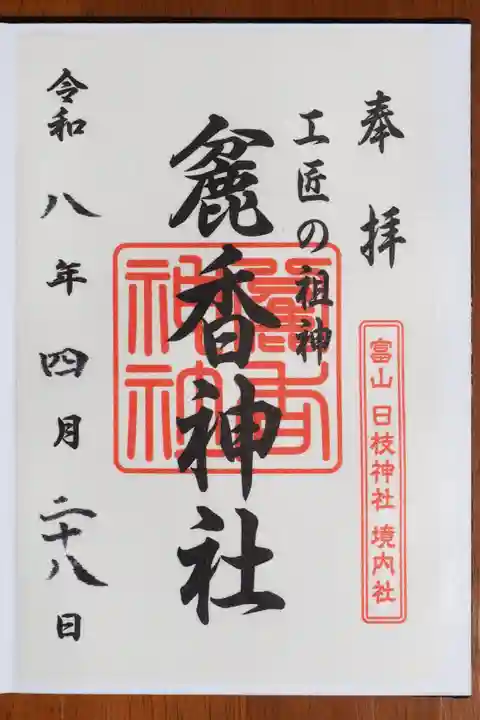 奉拝
富山 日枝神社 境内社
工匠の祖神
麁香神社
令和八年四月二十八日